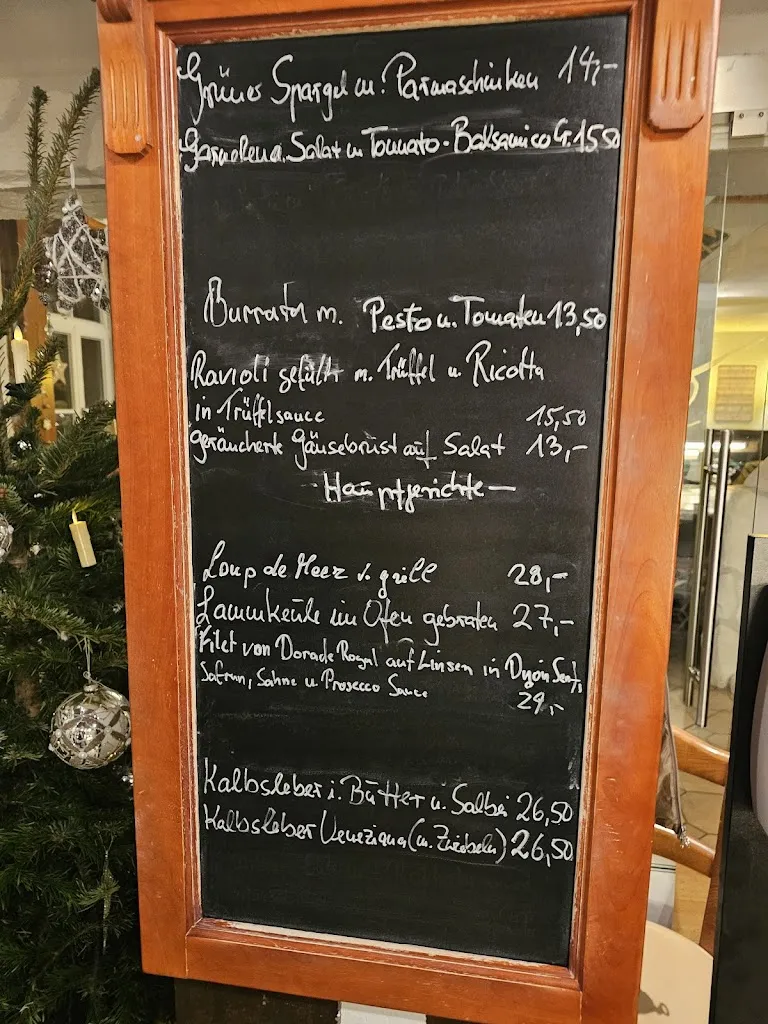 Grüner Spargel m. Parmaschinken 14,-
Salat m Tomato-Balsamico 15,50
Burrata m. Pesto u. Tomaten 13,50
Ravioli gefüllt m. Trüffel u. Ricotta
in Trüffelsauce 15,50
geräucherte Gänsebrust auf Salat 13,-
Hauptgerichte —
Loup de Meer v. grill 28,-
Lammkeule im Ofen gebraten 27,-
Filet von Dorade Royal auf Linsen in Dyon Senf,
Safran, Sahne u Prosecco Sauce 29,-
Kalbsleber i. Butter u. Salbei 26,50
Kalbsleber Veneziana (m. Zwiebeln) 26,50